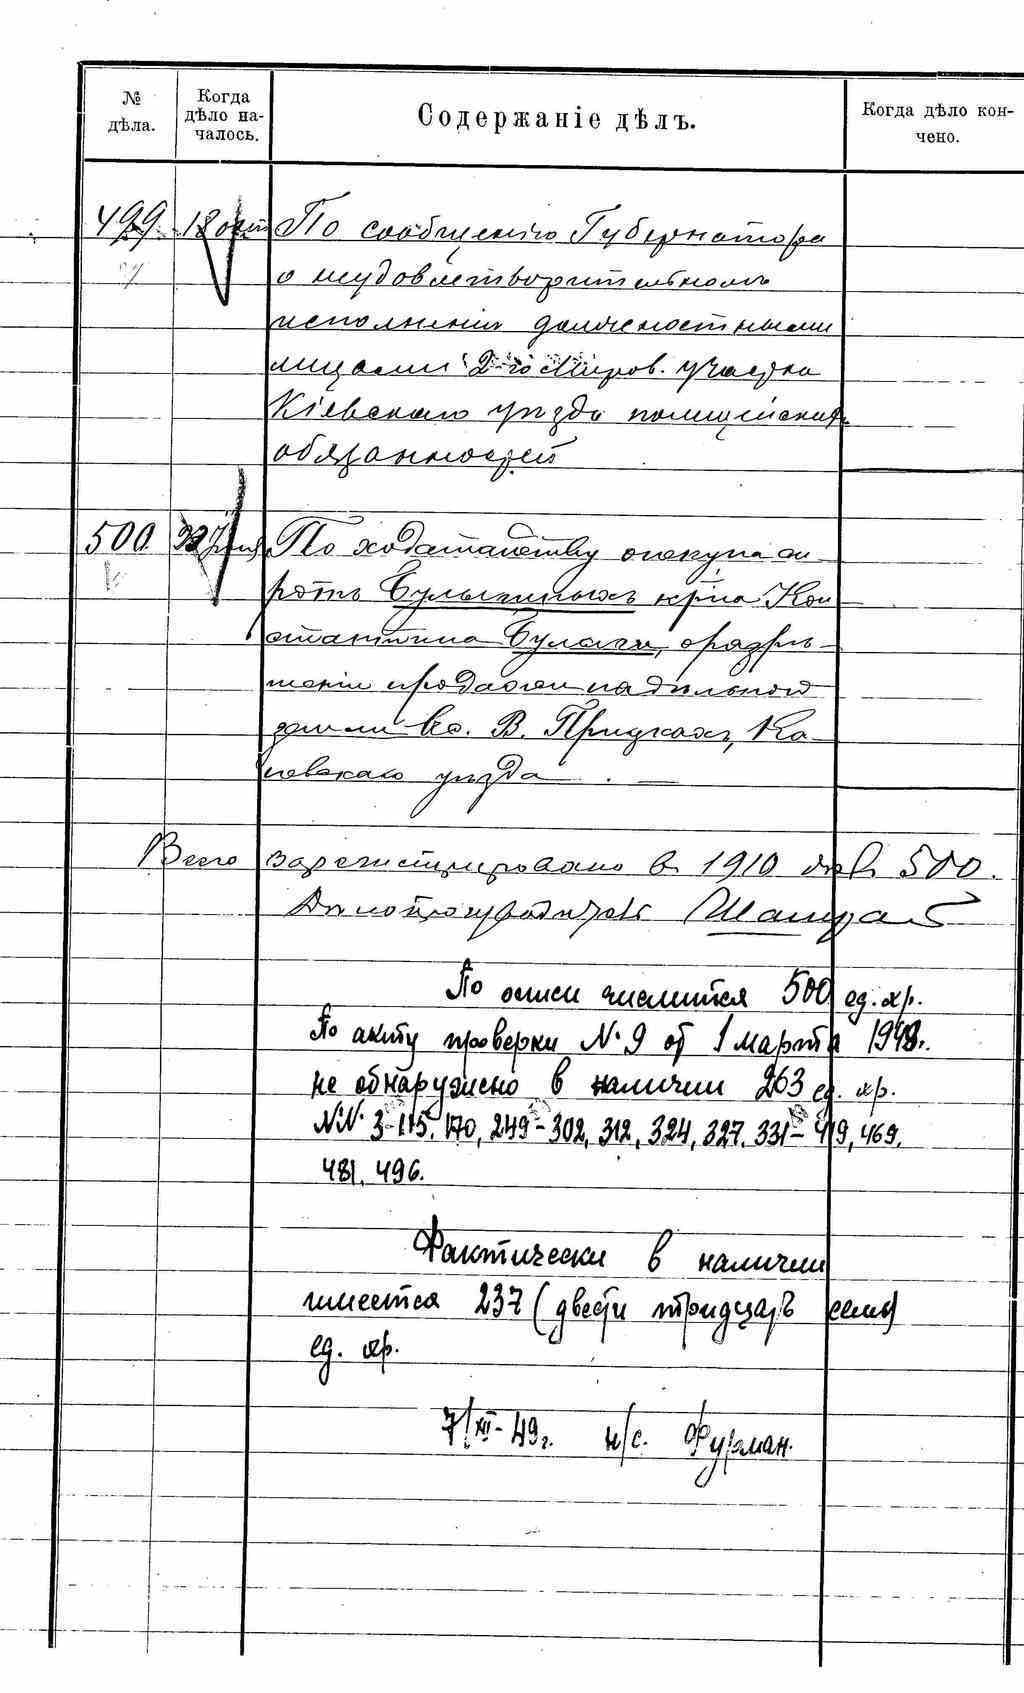 № дѣла.
Когда дѣло на-чалось.
Содержаніе дѣлъ.
Когда дѣло кон-чено.
499 18 окт По сообщенію Губернатора
о неудовлетворительномъ
исполненіи должностными
лицами 2-го Миров. участка
Кіевскаго уѣзда полицейскихъ
обязанностей
500. По ходатайству опекуна си-
ротъ Булыгиныхъ кр-на Кон-
стантина Булыги, о разрѣ-
шеніи продажи надѣльной
земли въ с. В. Прицкахъ, Ка-
невскаго уѣзда
Всего зарегистрировано в 1910 дѣлъ 500.
Дѣлопроизводитель
По описи числится 500 ед. хр.
По акту проверки №9 от 1 марта 1949г.
не обнаружено в наличии 263 ед. хр.
№№ 3-115, 170, 249-302, 312, 324, 327, 331-419, 469,
481, 496.
Фактически в наличии
имеется 237 (двести тридцать семь)
ед. хр.
7/XII-49г. н/с. Фурман.